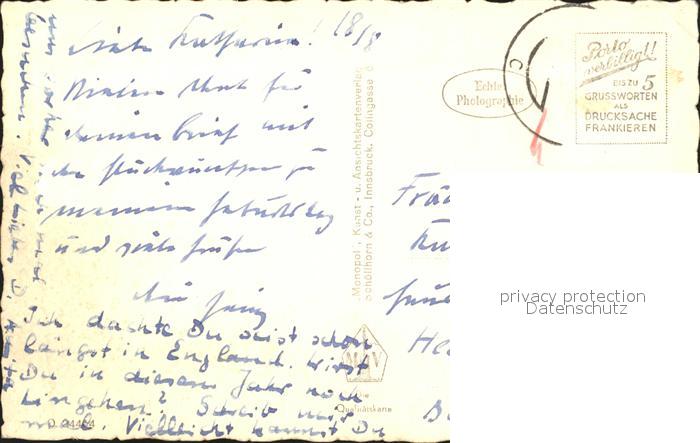 18/8
Liebe Katharina!
Vielen Dank für
deinen Brief mit
den Glückwünschen zu
meinem Geburtstag
und viele Grüße
Ich dachte Du seist schon
längst in England. Wirst
Du in diesem Jahr noch
hingehen? Schreib mir
mal. Vielleicht kannst Du
uns vorher
besuchen. Viel
Monopol, Kunst - u. Ansichtskartenverlag
Schöllhorn & Co., Innsbruck, Colingasse
Echte
Photographie
Porto
verbilligt!
BIS ZU 5
GRUSSWORTEN
ALS
DRUCKSACHE
FRANKIEREN
Frä
privacy protection
Datenschutz
MKV
Qualitätskarte